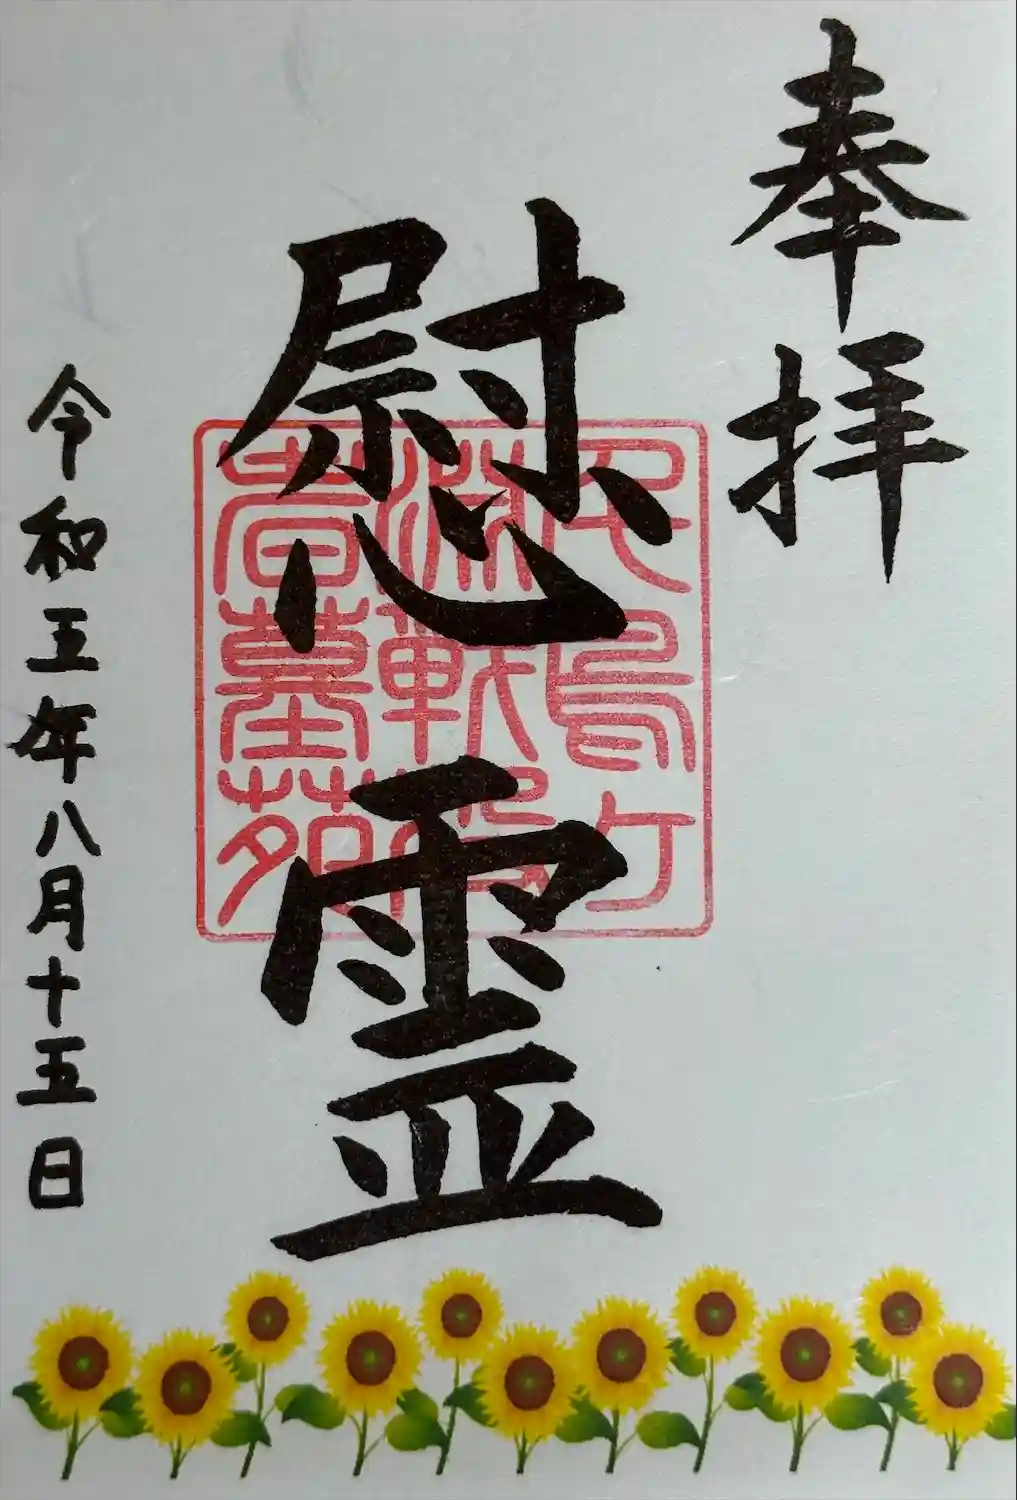 奉拝
慰霊
千鳥ケ
淵戰歿
者墓苑
令和五年八月十五日